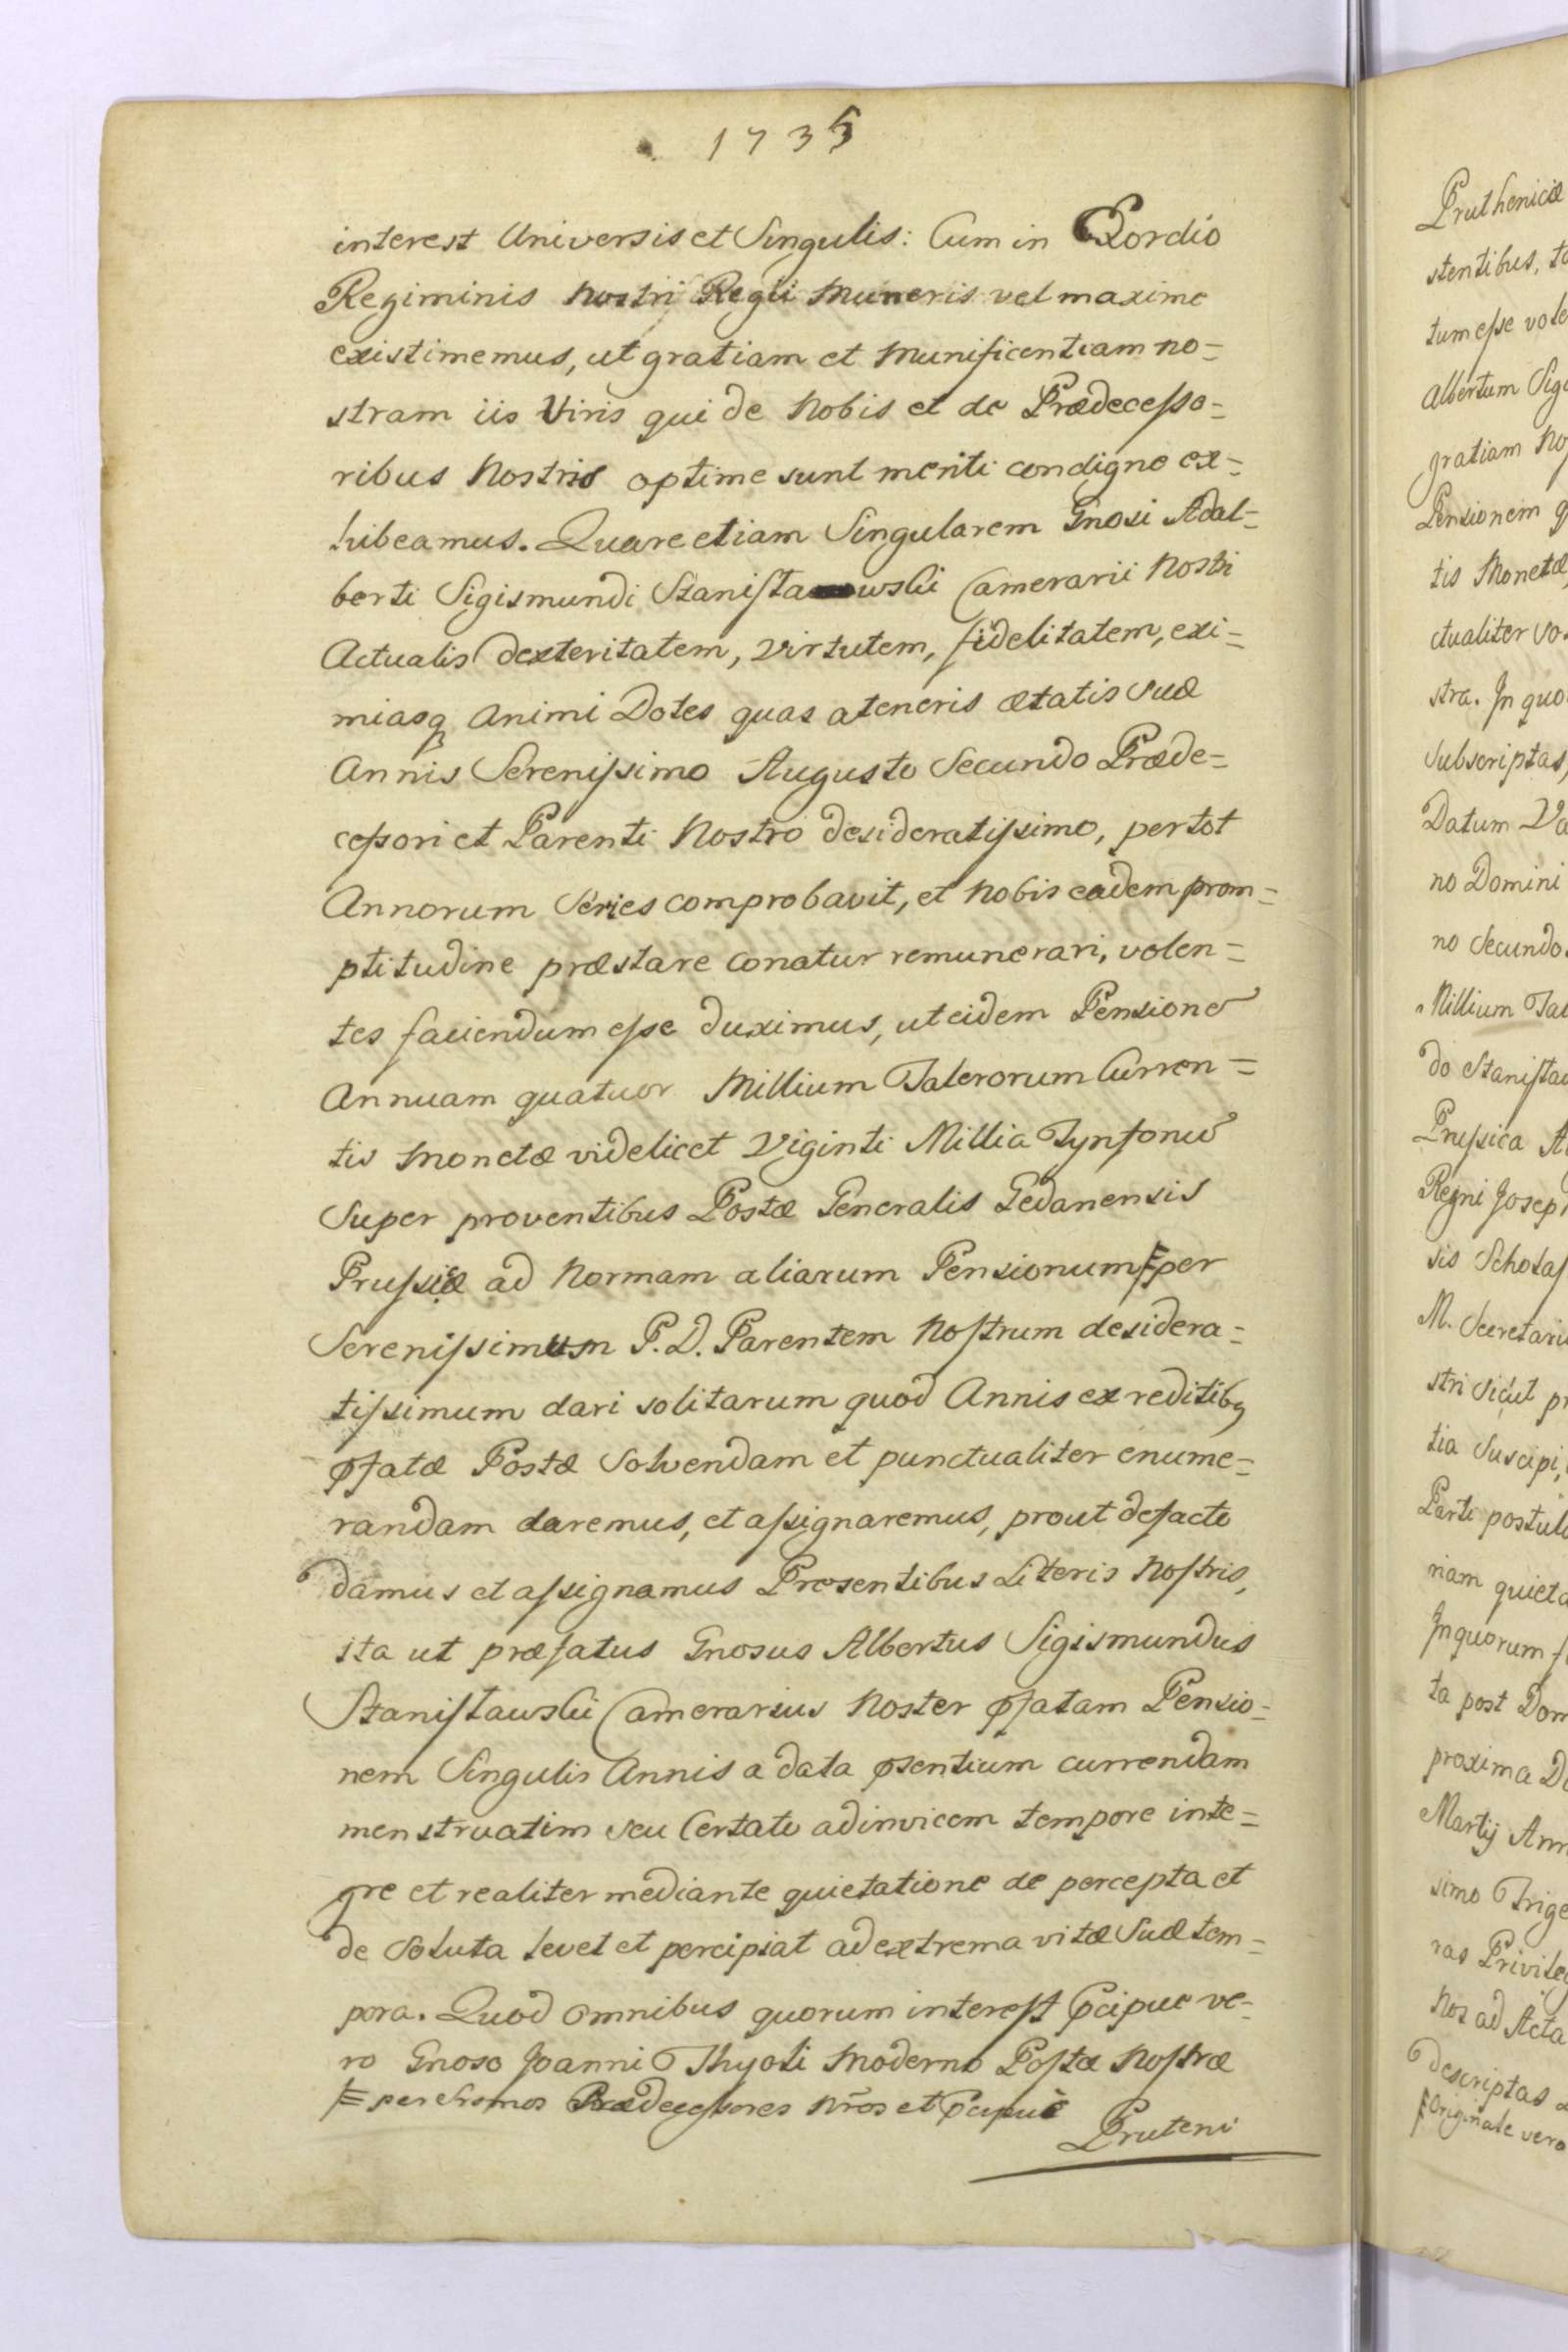 1735
interest Universis et Singulis: Cum in Exordio
Regiminis Nostri Regii Muneris vel maxime
existimemus, ut gratiam et Munificentiam no=
stram iis Viris qui de Nobis et de Prædecesso=
ribus Nostris optime sunt meriti condigne ex=
hibeamus. Quare etiam Singularem Gnosi Adal=
berti Sigismundi Stanisławski Camerarii Nostri
Actualis dexteritatem, virtutem, fidelitatem, exi=
miasq Animi Dotes quas a teneris ætatis suæ
Annis Serenissimo Augusto Secundo Præde=
cessori et Parenti Nostro desideratissimo, per tot
Annorum Series comprobavit, et Nobis eadem prom=
ptitudine præstare conatur remunerari, volen=
tes faciendum esse duximus, ut eidem Pensione
Annuam quatuor Millium Talerorum Curren=
tis Monetæ videlicet Viginti Millia Tynfonu
Super proventibus Postæ Generalis Gedanensis
Prussiæ ad Normam aliarum Pensionum per
Serenissimum P. D. Parentem Nostrum desidera=
tissimum dari solitarum quod Annis ex reditibq
pfatæ Postæ Solvendam et punctualiter enume=
randam daremus, et assignaremus, prout de facto
damus et assignamus Presentibus Literis Nostris,
ita ut præfatus Gnosus Albertus Sigismundus
Stanisławski Camerarius Noster pfatam Pensio=
nem Singulis Annis a data psentium currendam
menstruatim seu Certato adinvicem tempore inte=
gre et realiter mediante quietatione de percepta et
de Soluta levet et percipiat ad extrema vitæ Suæ tem=
pora. Quod omnibus quorum interest Pcipue ve=
ro Gnoso Joanni Thyoli Moderno Postæ Nostræ
per Srsmos Prædecessores Nros et Pcipuè
Pruteni
Pruthenicæ
stentibus, to
tum esse vole
Albertum Sigi
gratiam No
Pensionem q
tis Monetæ
ctualiter so
stra. In quo
Subscriptas,
Datum Va
no Domini
no Secundo.
Millium Tal
do Stanisła
Prussica A
Regni Joseph
sis Scholas
M. Secretari
stri sicut pr
tia Suscipi,
Parte postula
riam quieta
In quorum f
ta post Dom
proxima Do
Martij Ann
simo Trige
ras Privileg
Nos ad Acta
descriptas
Originale vero